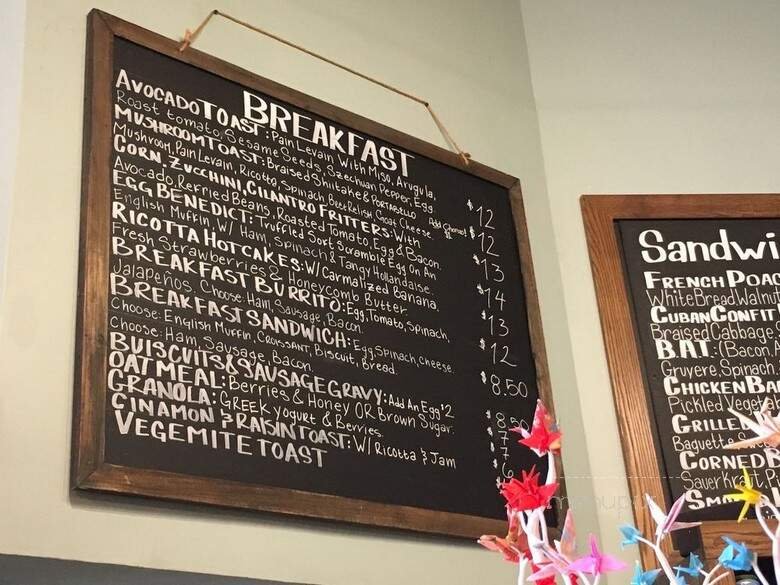 BREAKFAST
AVOCADO TOAST: Pain Levain With Miso, Arugula,
Roast tomato, Sesame Seeds, Szechuan Pepper, Egg. $12
MUSHROOM TOAST: Braised Shiitake & PORTABELLO
Mushroom, Pain Levain, Ricotta, Spinach, Beet Relish, Goat Cheese. Add Chorizo $2 $12
CORN, ZUCCHINI, CILANTRO FRITTERS: With
Avocado, Refried Beans, Roasted Tomato, Egg & Bacon. $13
EGG BENEDICT: Truffled Sort Scramble Egg On An
English Muffin, W/ Ham, Spinach & Tangy Hollandaise. $14
RICOTTA HOTCAKES: W/ Carmalized Banana,
Fresh Strawberries & Honeycomb Butter. $13
BREAKFAST BURRITO: Egg, Tomato, Spinach,
Jalapeños, Choose: Ham, Sausage, Bacon. $12
BREAKFAST SANDWICH: Egg, Spinach, cheese.
Choose: English Muffin, CROISSANT, Biscuit, Bread.
Choose: Ham, Sausage, Bacon. $8.50
BUISCUITS & SAUSAGE GRAVY: Add An Egg $2 $8.50
OATMEAL: Berries & Honey OR Brown Sugar. $7
GRANOLA: GREEK yogurt & Berries. $7
CINAMON & RAISIN TOAST: W/ Ricotta & Jam $6
VEGEMITE TOAST
Sandwi
FRENCH POAC
White Bread, Walnu
CUBAN CONFIT
Braised Cabbage
BAT: (Bacon, A
Gruyere, Spinach,
CHICKEN BA
Pickled Vegetab
GRILLED
Baguette, Swe
CORNED B
Sauer Kraut, Pi
SM